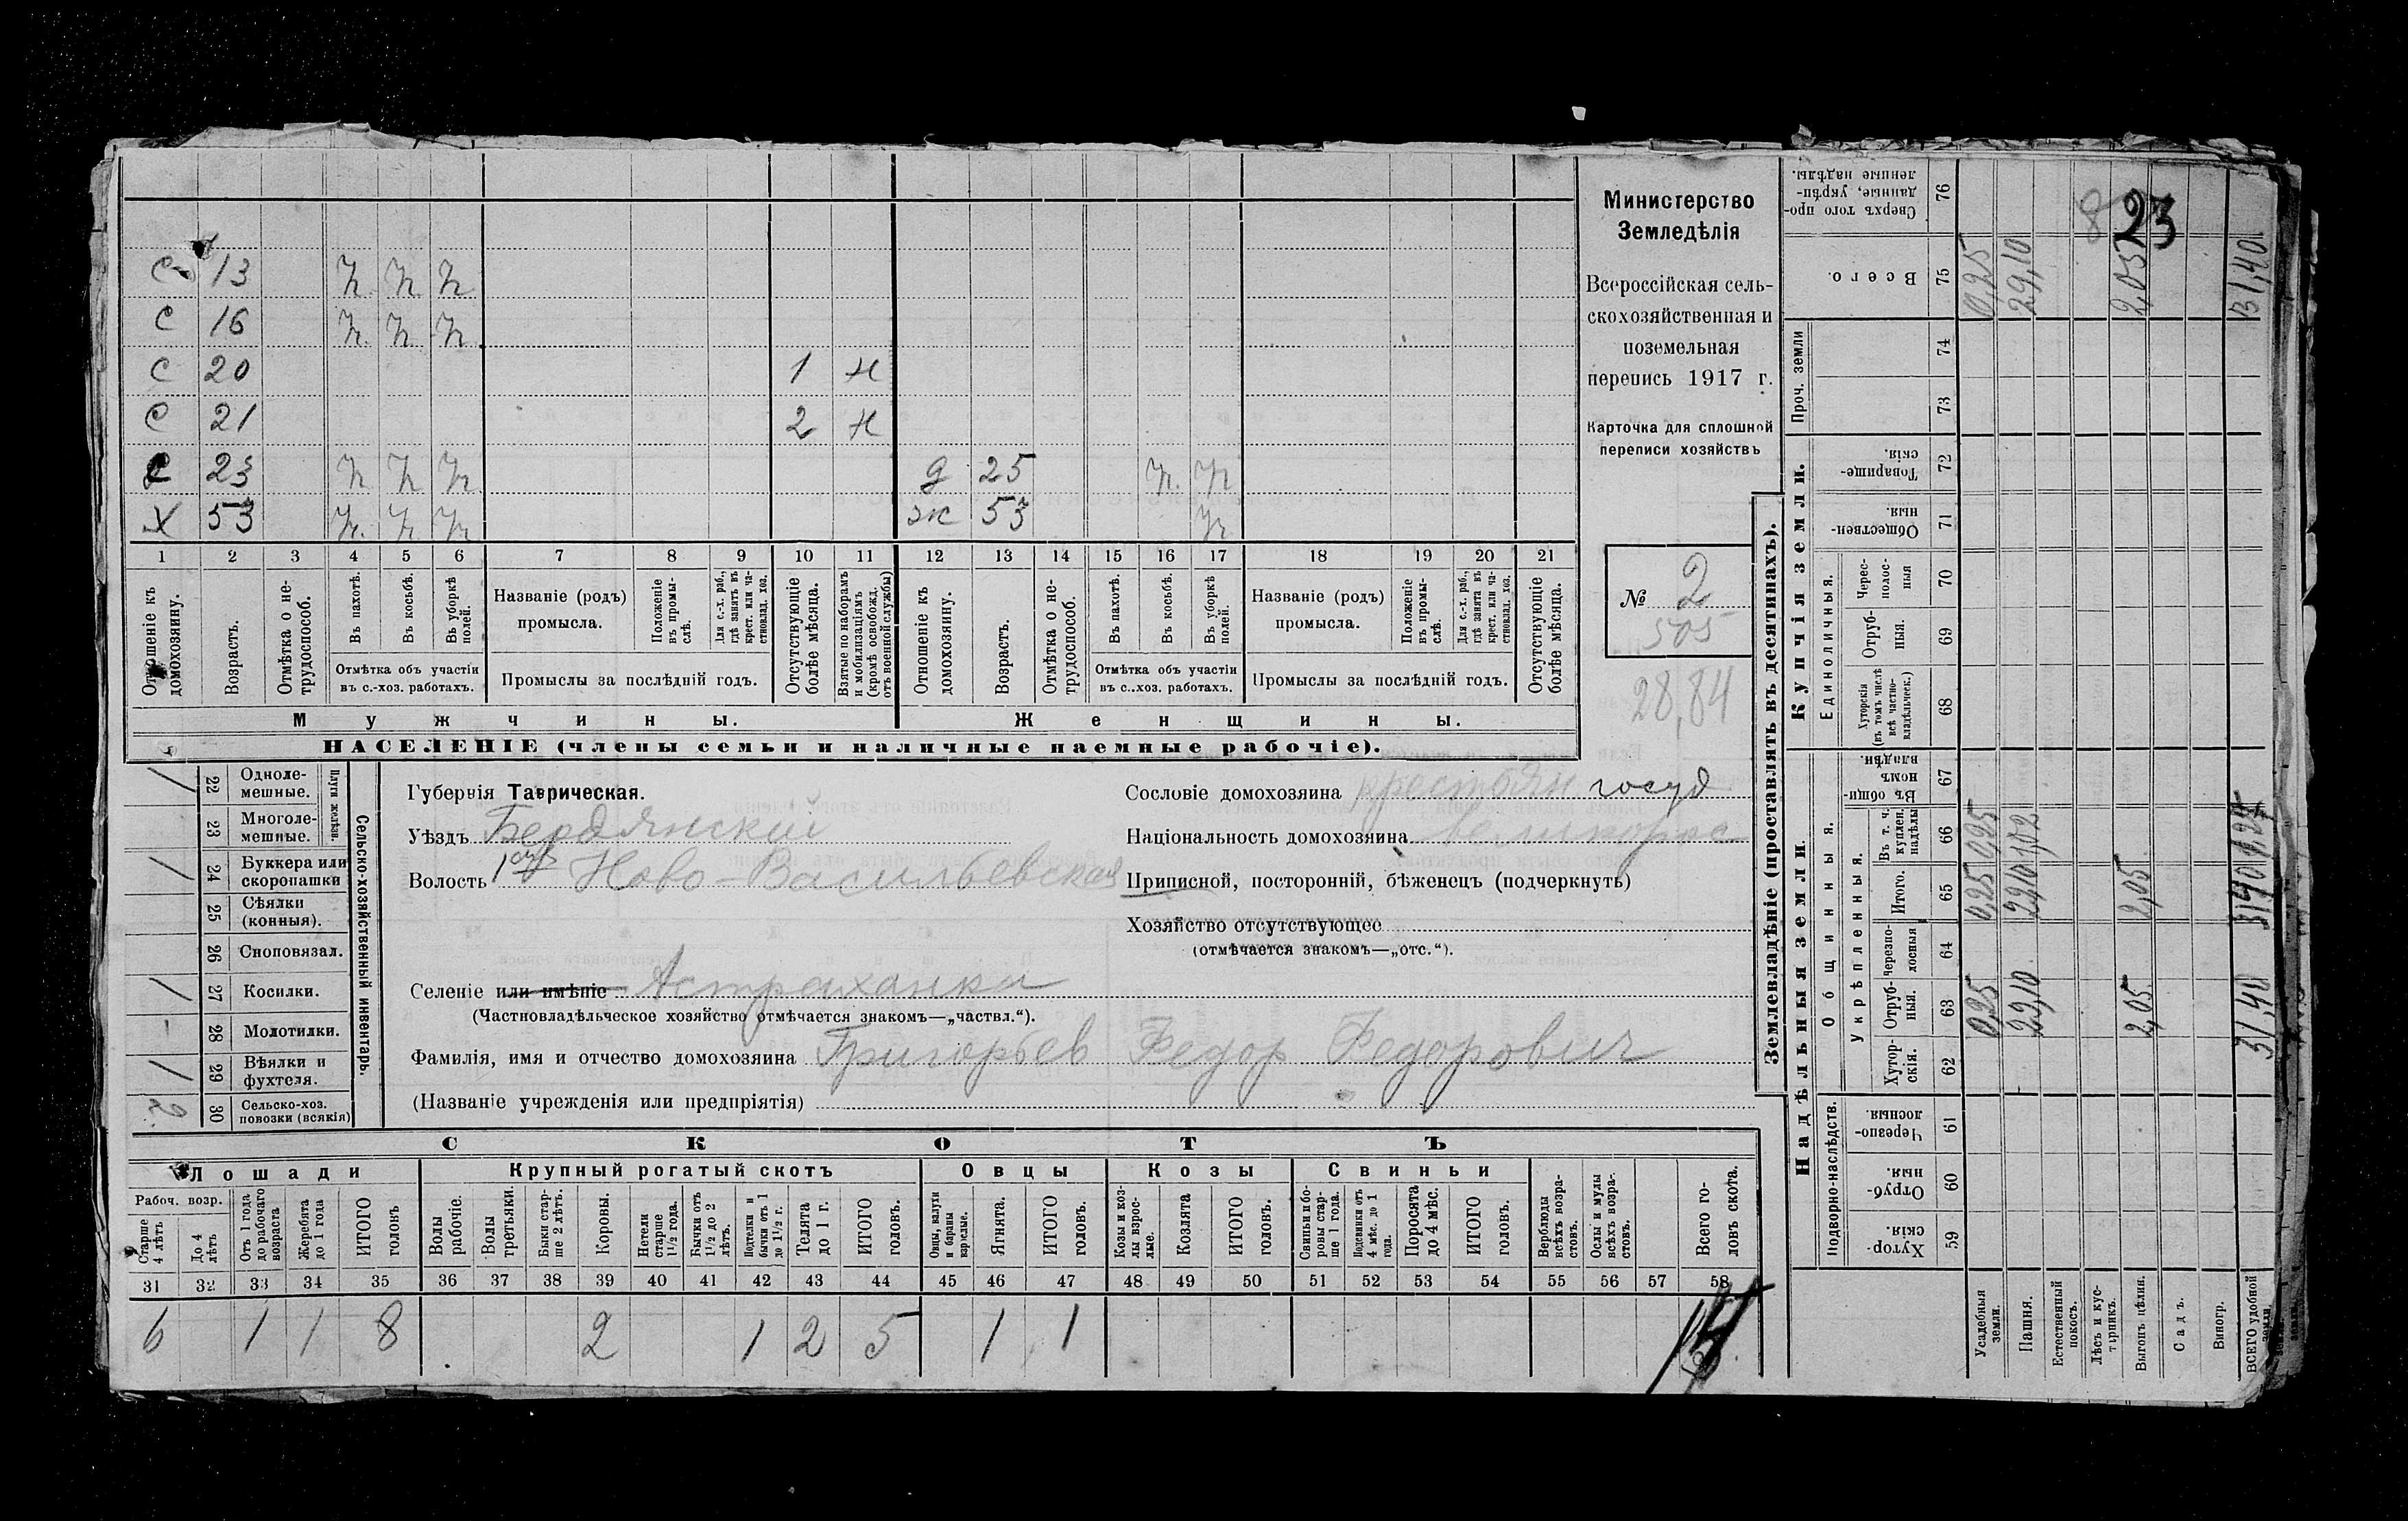 С 13 п п п
С 16 п п п
С 20 1 н
С 21 2 н
С 23 п п п д 25 п п
Х 53 п п п ж 53 п
1 2 3 4 5 6 7 8 9 10 11 12 13 14 15 16 17 18 19 20 21
Отношеніе къ домохозяину.
Возрастъ.
Отмѣтка о не-трудоспособ.
Въ пахотѣ.
Въ косьбѣ.
Въ уборкѣ полей.
Отмѣтка объ участіи въ с.-хоз. работахъ.
Названіе (родъ) промысла.
Положеніе въ промы-слѣ.
Для с.-х. раб., гдѣ занятъ въ крест. или ча-стновлад. хоз.
Промыслы за послѣдній годъ.
Отсутствующіе болѣе мѣсяца.
Взятые по наборамъ и мобилизаціямъ (кромѣ освобожд. отъ военной службы)
Отношеніе къ домохозяину.
Возрастъ.
Отмѣтка о не-трудоспособ.
Въ пахотѣ.
Въ косьбѣ.
Въ уборкѣ полей.
Отмѣтка объ участіи въ с..хоз. работахъ.
Названіе (родъ) промысла.
Положеніе въ промы-слѣ.
Для с.-х. раб., гдѣ занята въ крест. или ча-стновлад. хоз.
Промыслы за послѣдній годъ.
Отсутствующіе болѣе мѣсяца.
Мужчины. Женщины.
НАСЕЛЕНІЕ (члены семьи и наличные наемные рабочіе).
Министерство
Земледѣлія
Всероссійская сель-
скохозяйственная и
поземельная
перепись 1917 г.
Карточка для сплошной
переписи хозяйствъ
№ 2
505
28,84
Сельско-хозяйственный инвентарь.
Плуги желѣзн.
1 22 Одноле-мешные.
23 Многоле-мешные.
1 24 Буккера или скоропашки
25 Сѣялки (конныя).
26 Сноповязал.
1 27 Косилки.
- 28 Молотилки.
1 29 Вѣялки и фухтеля.
2 30 Сельско-хоз. повозки (всякія)
Губернія Таврическая.
Уѣздъ Бердянский
Волость 1ая Ново-Васильевская
Селеніе или имѣніе Астраханка
(Частновладѣльческое хозяйство отмѣчается знакомъ—„частвл.“).
Фамилія, имя и отчество домохозяина Григорьев Федор Федорович
(Названіе учрежденія или предпріятія)
Сословіе домохозяина крестьян госуд
Національность домохозяина великоросс
Приписной, посторонній, бѣженецъ (подчеркнуть)
Хозяйство отсутствующее
(отмѣчается знакомъ—„отс.“).
СКОТЪ
Лошади Крупный рогатый скотъ Овцы Козы Свиньи
Рабоч. возр.
Старше 4 лѣтъ
До 4 лѣтъ
Отъ 1 года до рабочаго возраста
Жеребята до 1 года
ИТОГО головъ
Волы рабочіе.
Волы третьяки.
Быки стар-ше 2 лѣтъ.
Коровы.
Нетели старше 1½ года.
Бычки отъ 1½ до 2 лѣтъ.
Подтелки и бычки отъ 1 до 1½ г.
Телята до 1 г.
ИТОГО головъ.
Овцы, валухи и бараны взрослые.
Ягнята.
ИТОГО головъ.
Козы и коз-лы взрос-лые.
Козлята
ИТОГО головъ.
Свиньи и бо-ровы стар-ше 1 года.
Подсвинки отъ 4 мѣс. до 1 года.
Поросята до 4 мѣс.
ИТОГО головъ.
Верблюды всѣхъ возра-стовъ.
Ослы и мулы всѣхъ возра-стовъ.
Всего го-ловъ скота.
31 32 33 34 35 36 37 38 39 40 41 42 43 44 45 46 47 48 49 50 51 52 53 54 55 56 57 58
6 1 1 8 2 1 2 5 1 1 14
Землевладѣніе (проставлять въ десятинахъ).
Купчія земли.
Надѣльныя земли
Сверхъ того про-данные, укрѣп-ленные надѣлы. 76
Всего. 75
Проч. земли 74 73
Товарище-скія. 72
Обществен-ныя. 71
Единоличныя.
Черес-полос-ныя 70
Отруб-ныя. 69
Хуторскія (въ томъ числѣ всѣ частно-владѣльческ.) 68
Общинныя.
Въ общи-номъ владѣн. 67
Укрѣпленныя.
Въ т. ч. куплен. надѣлы 66
Итого. 65
Черезпо-лосныя 64
Отруб-ныя. 63
Хутор-скія. 62
Подворно-наслѣдств.
Черезпо-лосныя. 61
Отруб-ныя. 60
Хутор-скія. 59
Усадебныя земли. 0,25 0,25 0,25 0,25
Пашня. 29,10 29,10 1,02 29,10
Естественный покосъ.
Лѣсъ и кус-тарникъ.
Выгонъ цѣлин. 2,05 2,05 2,05
Садъ.
Виногр.
ВСЕГО удобной земли. 31,40 31,40 31,40
8 23